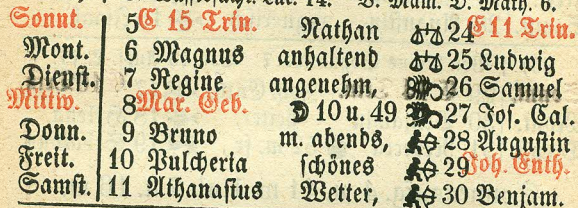 Sonnt. 5 C 15 Trin. Nathan 24 E 11 Trin.
Mont. 6 Magnus anhaltend 25 Ludwig
Dienst. 7 Regine angenehm, 26 Samuel
Mittw. 8 Mar. Geb. 10 u. 49 27 Jos. Cal.
Donn. 9 Bruno m. abends, 28 Augustin
Freit. 10 Pulcheria schönes 29 Joh. Enth.
Samst. 11 Athanasius Wetter, 30 Benjam.